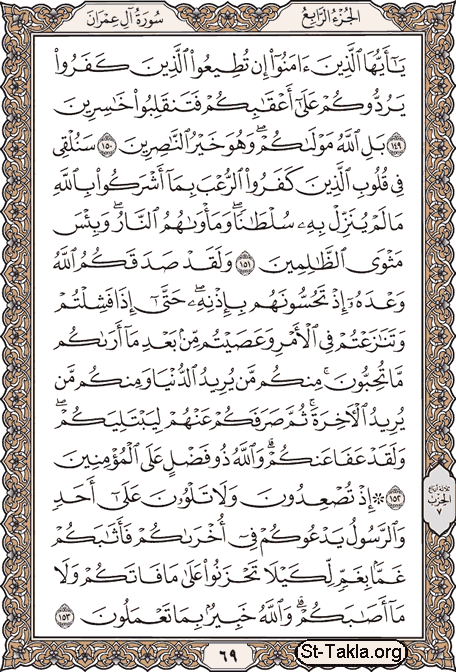 الجزء الرابع
سورة آل عمران
يَـٰٓأَيُّهَا ٱلَّذِينَ ءَامَنُوٓا۟ إِن تُطِيعُوا۟ ٱلَّذِينَ كَفَرُوا۟
يَرُدُّوكُمْ عَلَىٰٓ أَعْقَـٰبِكُمْ فَتَنقَلِبُوا۟ خَـٰسِرِينَ
١٤٩ بَلِ ٱللَّهُ مَوْلَىٰكُمْ ۖ وَهُوَ خَيْرُ ٱلنَّـٰصِرِينَ ١٥٠ سَنُلْقِى
فِى قُلُوبِ ٱلَّذِينَ كَفَرُوا۟ ٱلرُّعْبَ بِمَآ أَشْرَكُوا۟ بِٱللَّهِ
مَا لَمْ يُنَزِّلْ بِهِۦ سُلْطَـٰنًا ۖ وَمَأْوَىٰهُمُ ٱلنَّارُ ۚ وَبِئْسَ
مَثْوَى ٱلظَّـٰلِمِينَ ١٥١ وَلَقَدْ صَدَقَكُمُ ٱللَّهُ
وَعْدَهُۥٓ إِذْ تَحُسُّونَهُم بِإِذْنِهِۦ ۖ حَتَّىٰٓ إِذَا فَشِلْتُمْ
وَتَنَـٰزَعْتُمْ فِى ٱلْأَمْرِ وَعَصَيْتُم مِّنۢ بَعْدِ مَآ أَرَىٰكُم
مَّا تُحِبُّونَ ۚ مِنكُم مَّن يُرِيدُ ٱلدُّنْيَا وَمِنكُم مَّن
يُرِيدُ ٱلْـَٔاخِرَةَ ۚ ثُمَّ صَرَفَكُمْ عَنْهُمْ لِيَبْتَلِيَكُمْ ۖ
وَلَقَدْ عَفَا عَنكُمْ ۗ وَٱللَّهُ ذُو فَضْلٍ عَلَى ٱلْمُؤْمِنِينَ
١٥٢ ۞ إِذْ تُصْعِدُونَ وَلَا تَلْوُۥنَ عَلَىٰٓ أَحَدٍ
وَٱلرَّسُولُ يَدْعُوكُمْ فِىٓ أُخْرَىٰكُمْ فَأَثَـٰبَكُمْ
غَمًّۢا بِغَمٍّ لِّكَيْلَا تَحْزَنُوا۟ عَلَىٰ مَا فَاتَكُمْ وَلَا
مَآ أَصَـٰبَكُمْ ۗ وَٱللَّهُ خَبِيرٌۢ بِمَا تَعْمَلُونَ ١٥٣
ثلاثة أرباع
الحزب
٧
٦٩
St-Takla.org